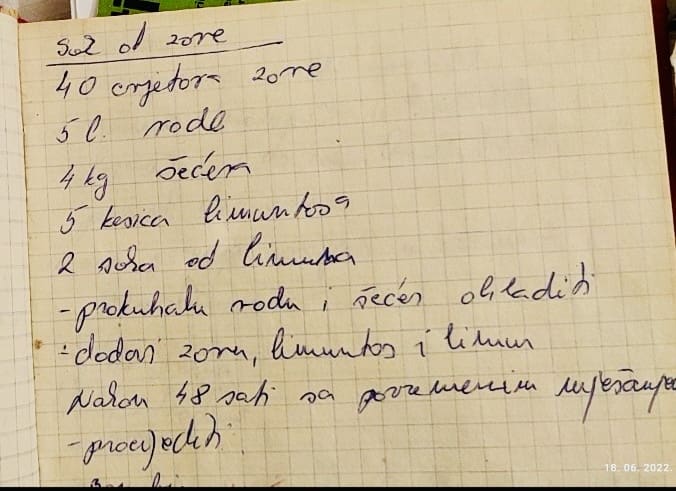 Sok od zove
40 cvjetova zove
5 l. vode
4 kg šećera
5 kesica limuntosa
2 soka od limuna
- prokuhalu vodu i šećer ohladiti
- dodavi zovu, limuntos i limun
Nakon 48 sati sa povremenim mješanje
- procijediti
18. 06. 2022.